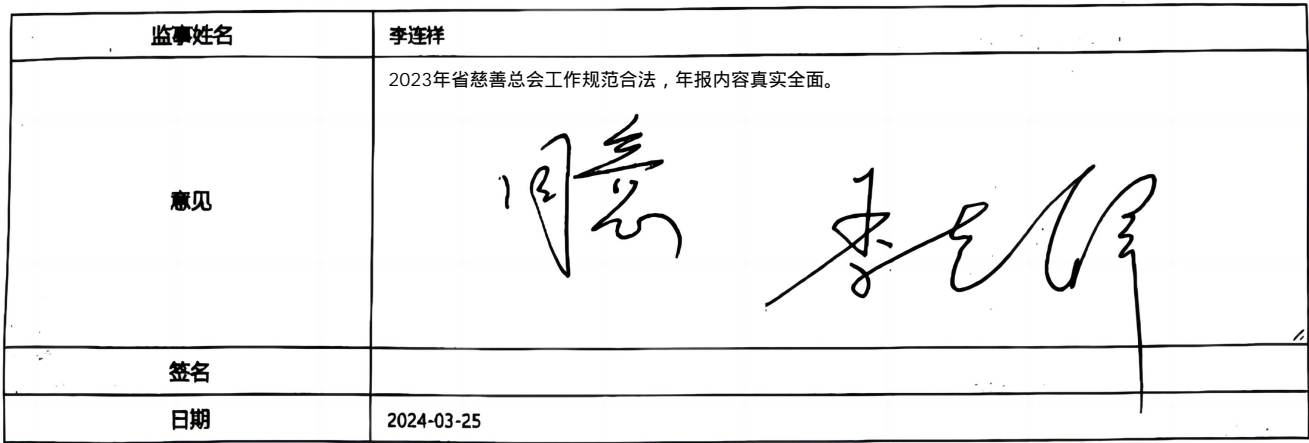 监事姓名 李连祥
2023年省慈善总会工作规范合法，年报内容真实全面。
意见
同意
签名
日期 2024-03-25